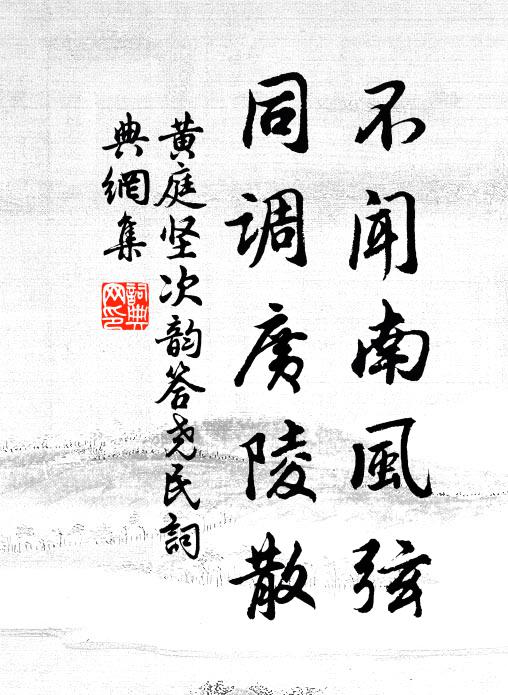 不闻南風弦
同调廣陵散
黄庭坚次韵答尧民詞
典網集
詞典網印